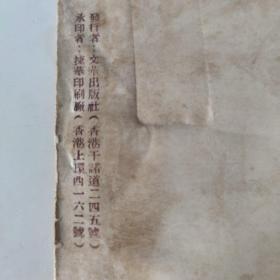 發行者：文華出版社（香港干諾道二四五號）
承印者：捷華印刷廠（香港上環西一六二號）